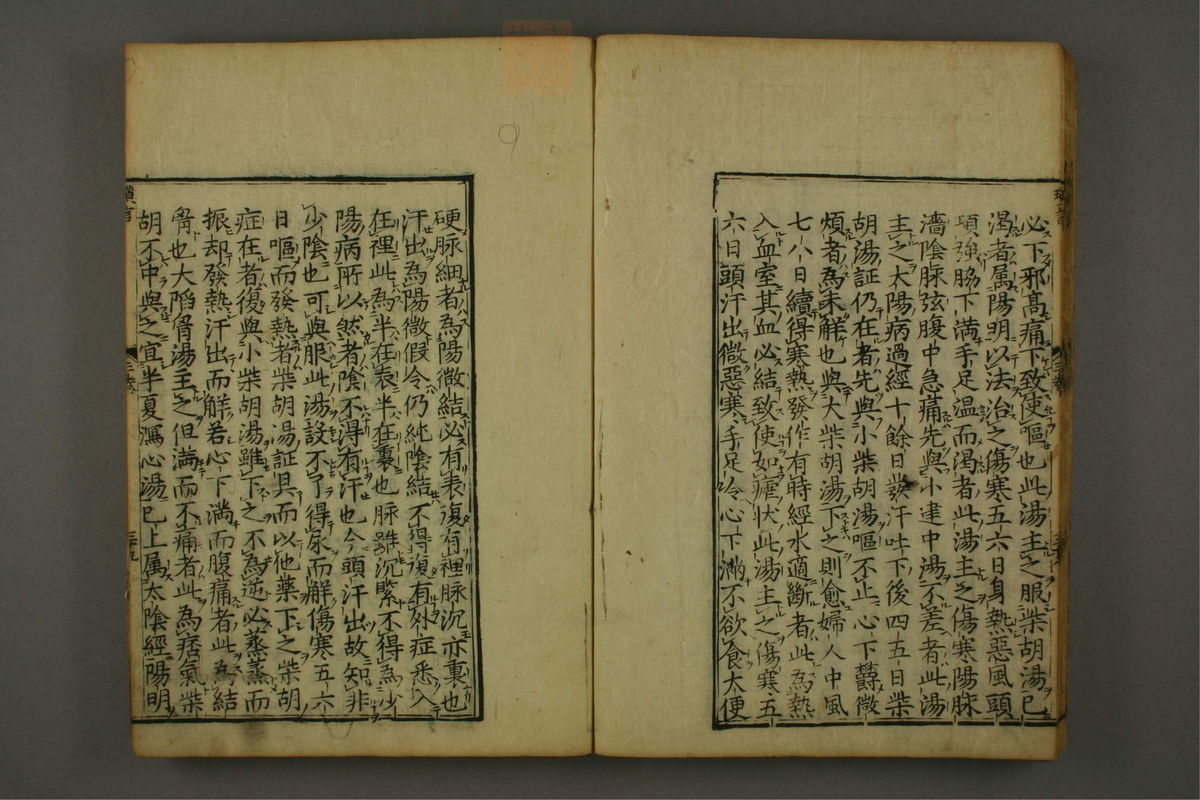 必下邪高痛下致使嘔也此湯主之服柴胡湯已
渴者属陽明以法治之傷寒五六日身熱惡風頭
項強脇下満手足温而渴者此湯主之傷寒陽脉
濇陰脉弦腹中急痛先與小建中湯不差者此湯
主之太陽病過經十餘日發汗吐下後四五日柴
胡湯証仍在者先與小柴胡湯嘔不止心下欝微
煩者為未解也與大柴胡湯下之則愈婦人中風
七八日續得寒熱發作有時經水適斷者此為熱
入血室其血必結致使如瘧狀此湯主之傷寒五
六日頭汗出微惡寒手足冷心下滿不欲食大便
硬脉細者為陽微結必有表復有裡脉沉亦裏也
汗出為陽微假令仍純陰結不得復有外症悉入
在裡此為半在表半在裏也脉雖沉緊不得為少
陽病所以然者陰不得有汗也今頭汗出故知非
少陰也可與服此湯設不了得尿而解傷寒五六
日嘔而發熱者柴胡湯証具而以他薬下之柴胡
症在者復與小柴胡湯雖下之不為逆必蒸蒸而
振却發熱汗出而解若心下満而腹痛者此為結
胷也大陥胷湯主之但満而不痛者此為痞氣柴
胡不中與之宜半夏瀉心湯已上属太陰經陽明